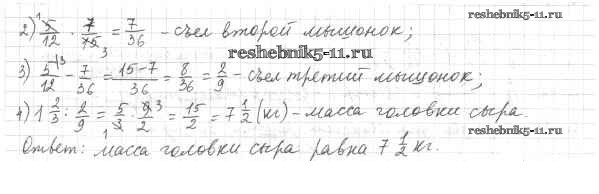 2) 5/12 · 7/15 = 7/36 - съел второй мышонок;
reshebnik5-11.ru
reshebnik5-11.ru
3) 5/12 - 7/36 = (15-7)/36 = 8/36 = 2/9 - съел третий мышонок;
4) 1 2/3 : 2/9 = 5/3 · 9/2 = 15/2 = 7 1/2 (кг) - масса головки сыра.
reshebnik5-11.ru
Ответ: масса головки сыра равна 7 1/2 кг.